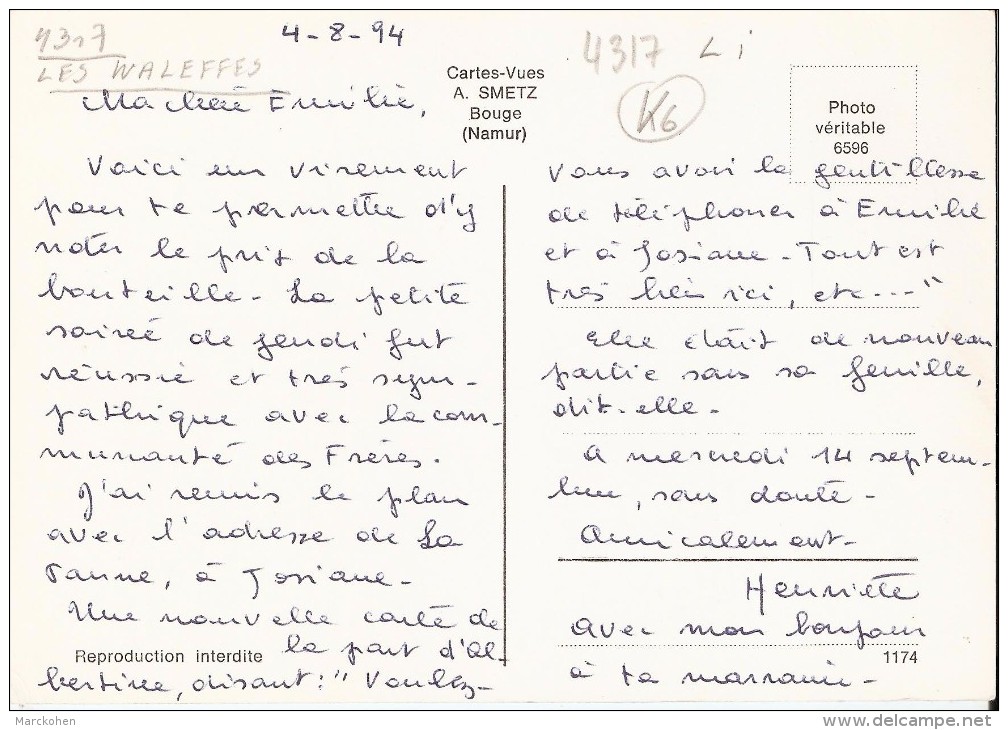 4317
LES WALEFFES
4-8-94
4317 Li
K6
Cartes-Vues
A. SMETZ
Bouge
(Namur)
Photo
véritable
6596
Ma chère Emilie,
Voici un virement
pour te permettre d'y
noter le prix de la
bouteille - La petite
soirée de jeudi fut
réussie et très sym-
pathique avec la com-
munauté des Frères.
J'ai remis le plan
avec l'adresse de La
Panne, à Josiane -
Une nouvelle carte de
la part d'Al-
bertine, disant : " Voulez-
Reproduction interdite
vous avoir la gentillesse
de téléphoner à Emilie
et à Josiane - Tout est
très bien ici, etc---"
Elle était de nouveau
partie sans sa feuille,
dit-elle -
A mercredi 14 septem-
bre, sans doute -
Amicalement -
Henriette
avec mon bonjour
1174
à ta marraine -
Marckohen
www.delcampe.net